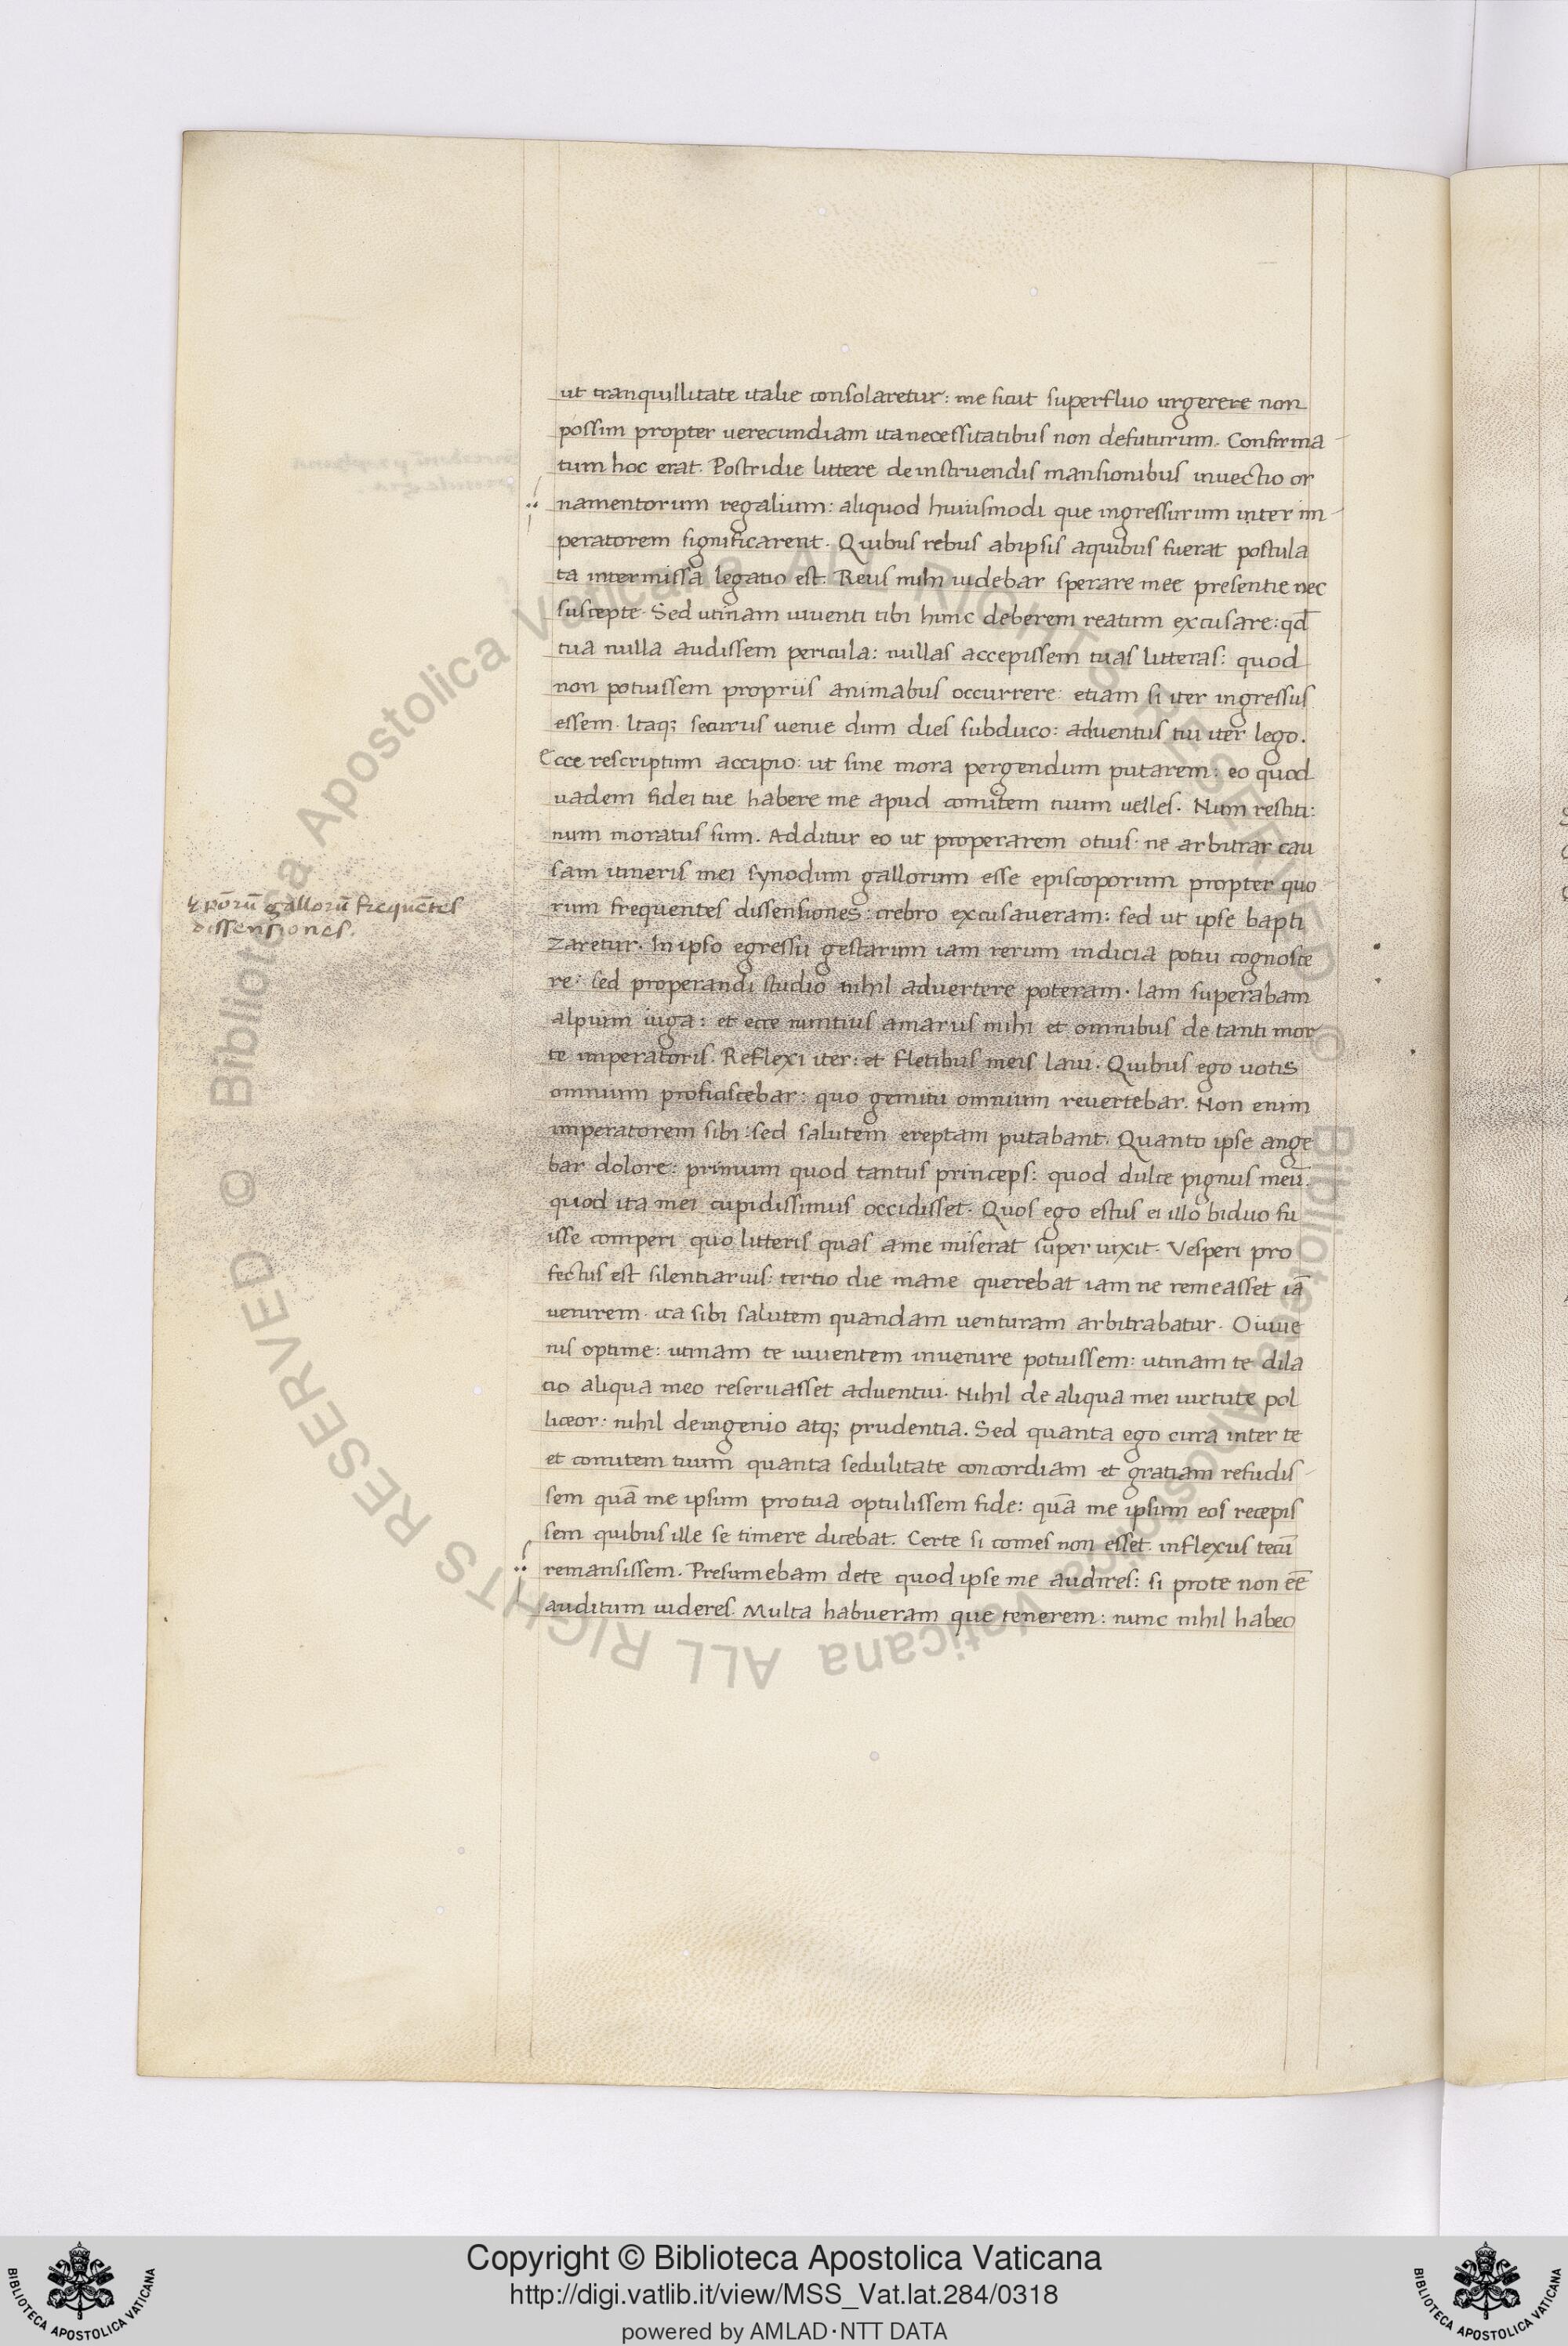 ut tranquillitate italie consolaretur: me sicut superfluo urgerere non
possim propter uerecundiam ita necessitatibus non defuturum. Confirma
tum hoc erat. Postridie littere de instruendis mansionibus inuectio or
namentorum regalium: aliquod huiusmodi que ingressurum inter im
peratorem significarent. Quibus rebus ab ipsis aquibus fuerat postula
ta intermissa legatio est. Reus mihi uidebar sperare mee presentie nec
suscepte. Sed utinam uiuenti tibi hunc deberem reatum excusare: qd̄
tua nulla audissem pericula: nullas accepissem tuas litteras: quod
non potuissem propriis animabus occurrere: etiam si iter ingressus
essem. Itaq; securus uenie dum dies subduco: aduentus tui iter lego.
Ecce rescriptum accipio: ut sine mora pergendum putarem: eo quod
uadem fidei tue habere me apud comitem tuum uelles. Num restiti:
num moratus sum. Additur eo ut properarem otius. ne arbitrar cau
sam itineris mei synodum gallorum esse episcoporum propter quo
rum frequentes dissensiones: crebro excusaueram: sed ut ipse bapti
zaretur. In ipso egressu gestarum iam rerum indicia potui cognosce
re: sed properandi studio nihil aduertere poteram. Iam superabam
alpium iuga: et ecce nuntius amarus mihi et omnibus de tanti mor
te imperatoris. Reflexi iter: et fletibus meis laui. Quibus ego uotis
omnium proficiscebar: quo gemitu omnium reuertebar. Non enim
imperatorem sibi: sed salutem ereptam putabant. Quanto ipse ange
bar dolore: primum quod tantus princeps: quod dulce pignus meū.
quod ita mei cupidissimus occidisset. Quos ego estus ei illo biduo fu
isse comperi quo litteris quas ame miserat super uixit. Vesperi pro
fectus est silentiarius: tertio die mane querebat iam ne remeasset iā
uenirem. ita sibi salutem quandam uenturam arbitrabatur. O iuue
nis optime: utinam te uiuentem inuenire potuissem: utinam te dila
tio aliqua meo reseruasset aduentui. Nihil de aliqua mei uirtute pol
liceor: nihil deingenio atq; prudentia. Sed quanta ego cura inter te
et comitem tuum quanta sedulitate concordiam et gratiam refudis
sem quā me ipsum protua optulissem fide: quā me ipsum eos recepis
sem quibus ille se timere dicebat. Certe si comes non esset inflexus tecū
remansissem. Presumebam dete quod ipse me audires: si prote non eē
auditum uideres. Multa habueram que tenerem: nunc nihil habeo
gallorū frequētes
dissensiones.
© Biblioteca Apostolica Vaticana ALL RIGHTS RESERVED © Biblioteca Apostolica Vaticana ALL RIGHTS RESERVED
Copyright © Biblioteca Apostolica Vaticana
http://digi.vatlib.it/view/MSS_Vat.lat.284/0318
powered by AMLAD·NTT DATA
BIBLIOTECA APOSTOLICA VATICANA
BIBLIOTECA APOSTOLICA VATICANA